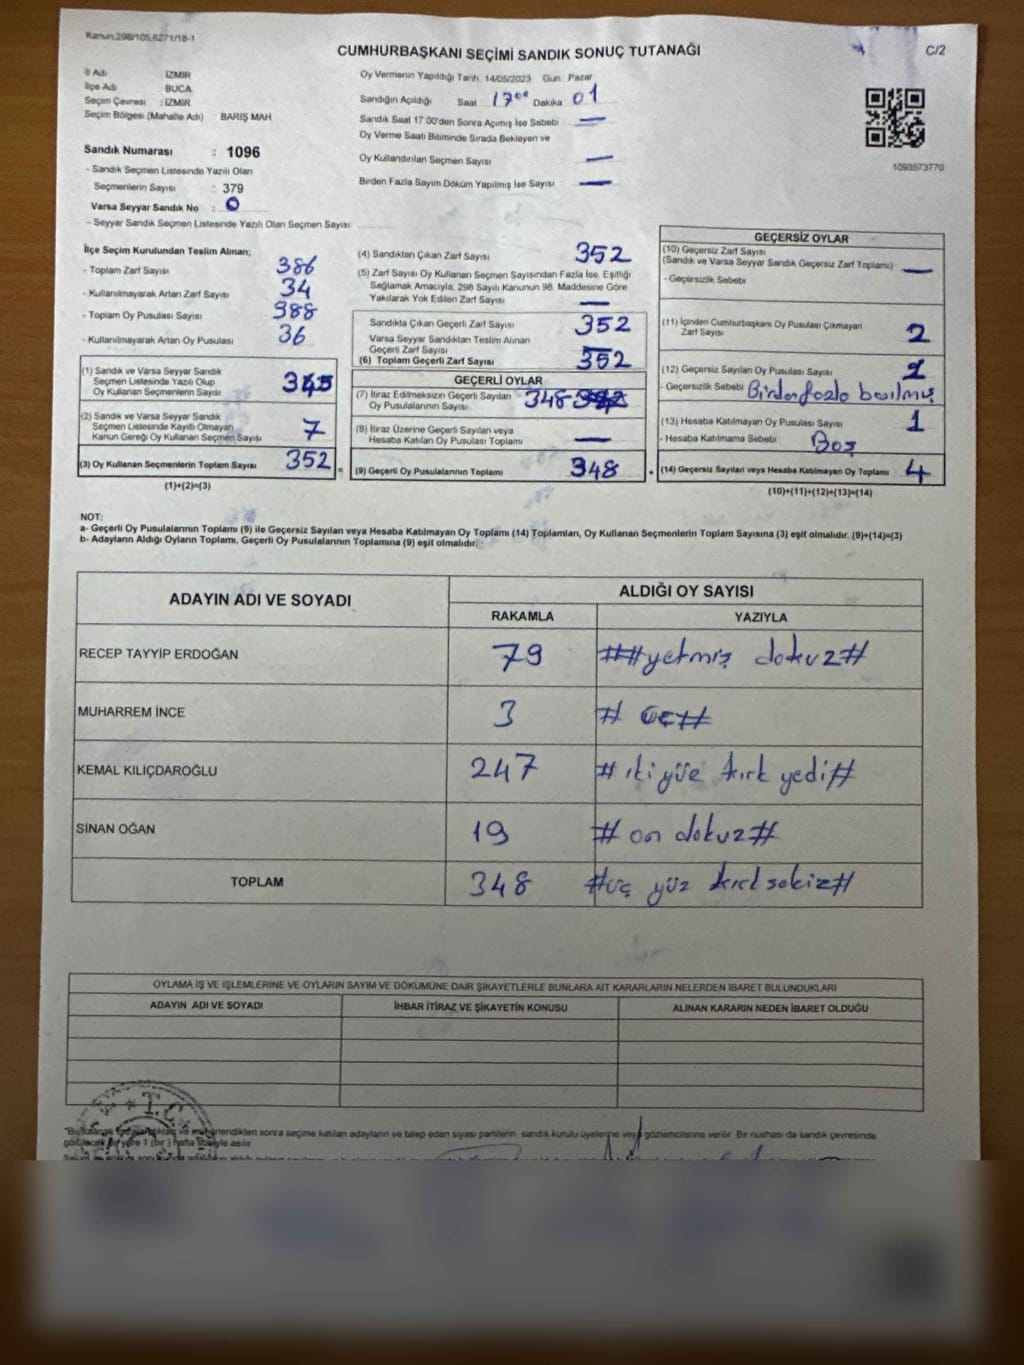 Kanun:298/105,6271/18-1
CUMHURBAŞKANI SEÇİMİ SANDIK SONUÇ TUTANAĞI
C/2
İl Adı İZMİR
İlçe Adı BUCA
Seçim Çevresi : İZMİR
Seçim Bölgesi (Mahalle Adı) BARIŞ MAH
Sandık Numarası : 1096
- Sandık Seçmen Listesinde Yazılı Olan
Seçmenlerin Sayısı : 379
Varsa Seyyar Sandık No : 0
- Seyyar Sandık Seçmen Listesinde Yazılı Olan Seçmen Sayısı:
Oy Vermenin Yapıldığı Tarih 14/05/2023 Gün Pazar
Sandığın Açıldığı Saat 17 00 Dakika 01
Sandık Saat 17.00'den Sonra Açımış İse Sebebi —
Oy Verme Saati Bitiminde Sırada Bekleyen ve
Oy Kullandırılan Seçmen Sayısı —
Birden Fazla Sayım Döküm Yapılmış İse Sayısı —
1093573770
İlçe Seçim Kurulundan Teslim Alınan;
- Toplam Zarf Sayısı 386
- Kullanılmayarak Artan Zarf Sayısı 34
- Toplam Oy Pusulası Sayısı 388
- Kullanılmayarak Artan Oy Pusulası 36
(1) Sandık ve Varsa Seyyar Sandık
Seçmen Listesinde Yazılı Olup
Oy Kullanan Seçmenlerin Sayısı 345
(2) Sandık ve Varsa Seyyar Sandık
Seçmen Listesinde Kayıtlı Olmayan
Kanun Gereği Oy Kullanan Seçmen Sayısı 7
(3) Oy Kullanan Seçmenlerin Toplam Sayısı 352
(1)+(2)=(3)
(4) Sandıktan Çıkan Zarf Sayısı 352
(5) Zarf Sayısı Oy Kullanan Seçmen Sayısından Fazla İse, Eşitliği
Sağlamak Amacıyla, 298 Sayılı Kanunun 98. Maddesine Göre
Yakılarak Yok Edilen Zarf Sayısı —
Sandıkta Çıkan Geçerli Zarf Sayısı 352
Varsa Seyyar Sandıktan Teslim Alınan
Geçerli Zarf Sayısı —
(6) Toplam Geçerli Zarf Sayısı 352
GEÇERLİ OYLAR
(7) İtiraz Edilmeksizin Geçerli Sayılan
Oy Pusulalarının Sayısı 348
(8) İtiraz Üzerine Geçerli Sayılan veya
Hesaba Katılan Oy Pusulası Toplamı —
(9) Geçerli Oy Pusulalarının Toplamı 348
GEÇERSİZ OYLAR
(10) Geçersiz Zarf Sayısı
(Sandık ve Varsa Seyyar Sandık Geçersiz Zarf Toplamı) —
- Geçersizlik Sebebi
(11) İçinden Cumhurbaşkanı Oy Pusulası Çıkmayan
Zarf Sayısı 2
(12) Geçersiz Sayılan Oy Pusulası Sayısı 1
- Geçersizlik Sebebi Birden fazla basılmış
(13) Hesaba Katılmayan Oy Pusulası Sayısı 1
- Hesaba Katılmama Sebebi: Boş
(14) Geçersiz Sayılan veya Hesaba Katılmayan Oy Toplamı 4
(10)+(11)+(12)+(13)=(14)
NOT:
a- Geçerli Oy Pusulalarının Toplamı (9) ile Geçersiz Sayılan veya Hesaba Katılmayan Oy Toplamı (14) Toplamları, Oy Kullanan Seçmenlerin Toplam Sayısına (3) eşit olmalıdır. (9)+(14)=(3)
b- Adayların Aldığı Oyların Toplamı, Geçerli Oy Pusulalarının Toplamına (9) eşit olmalıdır.
ADAYIN ADI VE SOYADI ALDIĞI OY SAYISI
RAKAMLA YAZIYLA
RECEP TAYYİP ERDOĞAN 79 ##yetmiş dokuz#
MUHARREM İNCE 3 # üç#
KEMAL KILIÇDAROĞLU 247 # iki yüz kırk yedi#
SİNAN OĞAN 19 # on dokuz#
TOPLAM 348 #üç yüz kırk sekiz#
OYLAMA İŞ VE İŞLEMLERİNE VE OYLARIN SAYIM VE DÖKÜMÜNE DAİR ŞİKAYETLERLE BUNLARA AİT KARARLARIN NELERDEN İBARET BULUNDUKLARI
ADAYIN ADI VE SOYADI İHBAR İTİRAZ VE ŞİKAYETİN KONUSU ALINAN KARARIN NEDEN İBARET OLDUĞU
sonra seçime katılan adayların ve talep eden siyasi partilerin sandık kurulu üyelerine veya gözlemcilerine verilir. Bir nüshası da sandık çevresinde
görülecek bir yere 1 (bir) hafta süreyle asılır